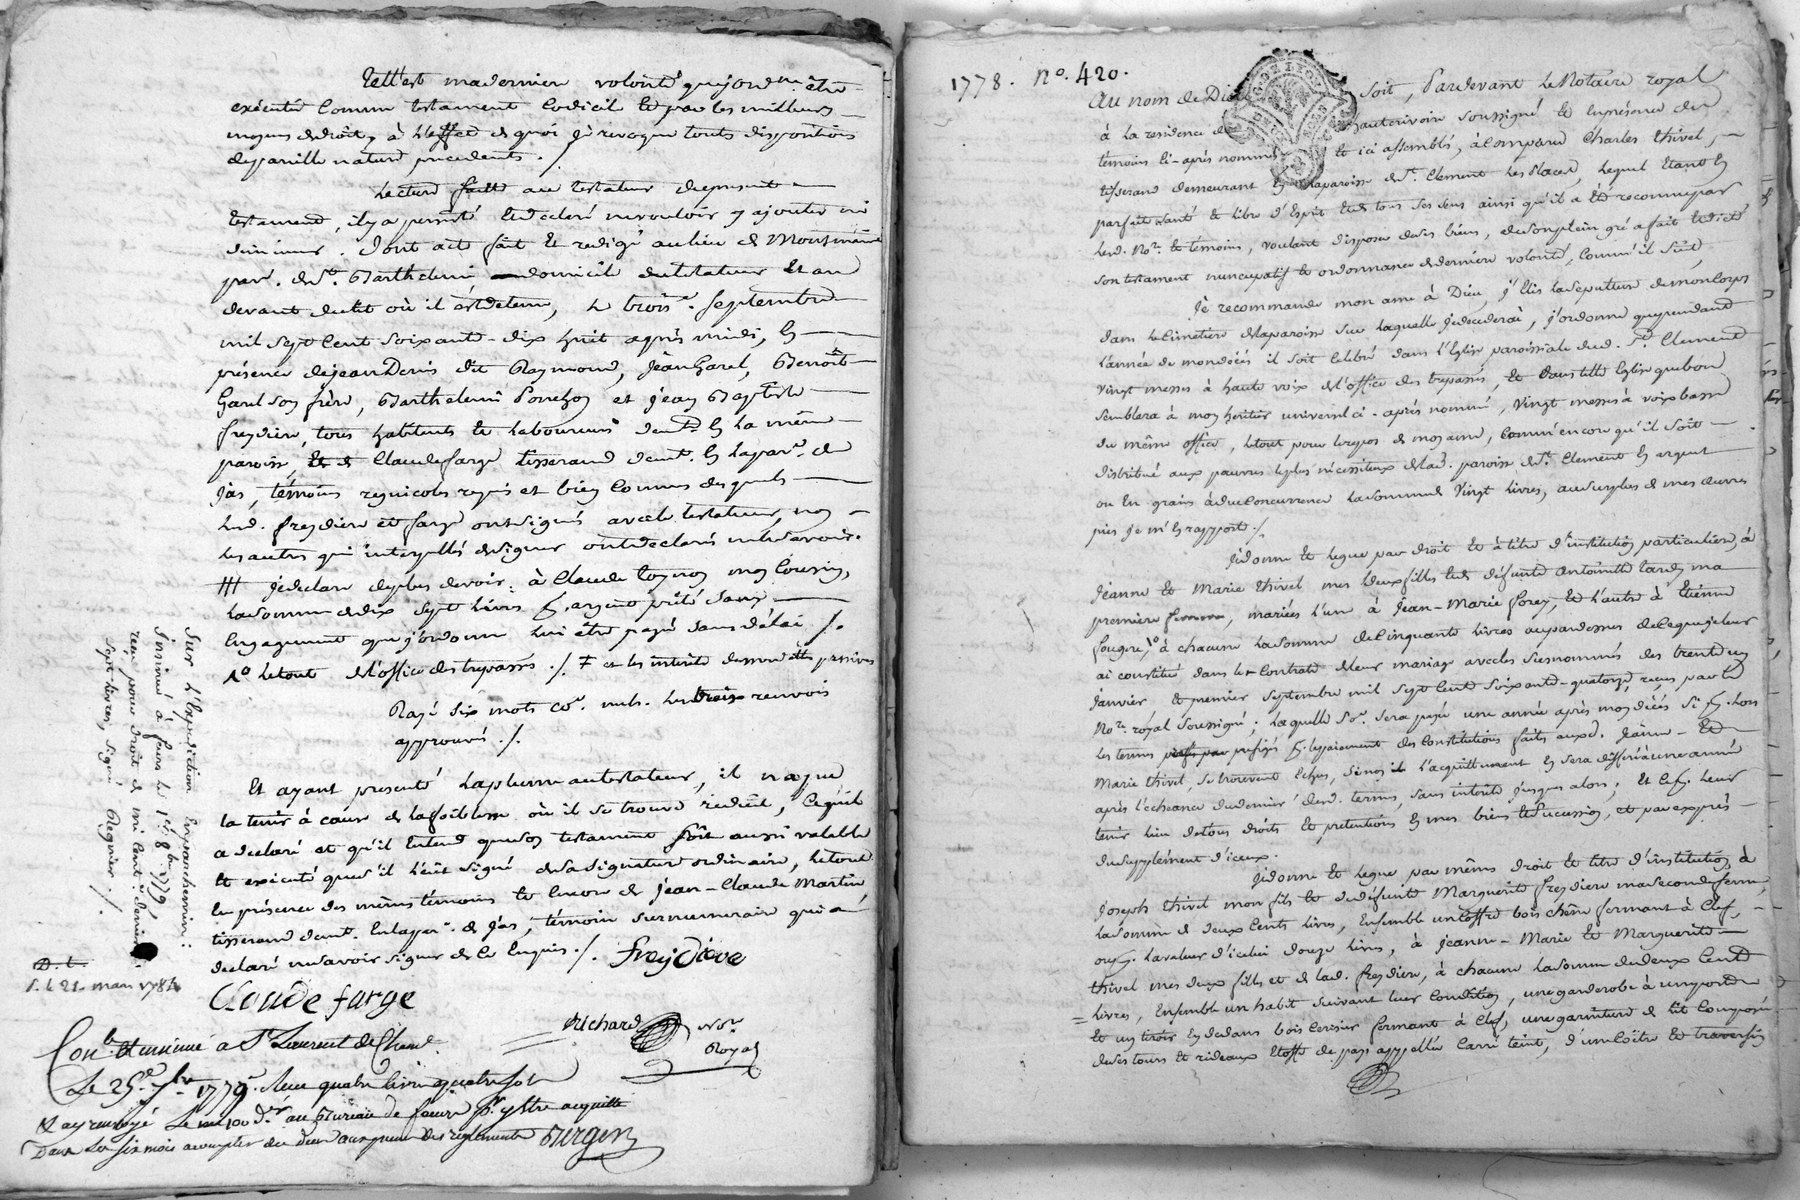 Telle est ma derniere volonté que j'ordne. être
exécutée comme testament codicil et par les meilleurs
moyens de droit, à l'effet de quoi je revoque touts dispositions
de pareille nature precedents ./
Lecture faite au testateur du present
testament, il y a persisté et declaré ne vouloir y ajouter ni
diminuer. Dont acte fait et redigé au lieu de
par. de St. Barthelemi domicile du testateur et au
devant du lit où il est detenu, le trois e. septembre
mil sept cent soixante-dix huit après midi, en
présence de jean Denis dit Raymond, Jean Garel, Benoit
Garel son frère, Barthelemi et jean Baptiste
freydiere, tous habitants et laboureurs demts. en la même
paroisse, et de Claude farge tisserand demt. en la par. de
Jas, témoins regnicoles requis et bien connus desquels
lesd. freydiere et farge ont signés avec le testateur, non
les autres qui interpellés de signer ont declarés ne le savoir.
### je declare de plus devoir à Claude mon Cousin,
la somme de dix sept livres en argent prêté sans
engagement que j'ordonne lui être payé sans délai ./.
1º le tout de l'office des trepassés ./ ≠ et les interêts de mes dettes passives
Rayé six mots co. nuls. les trois renvois
approuvés ./.
Et ayant presenté la plume au testateur, il n'a pu
la tenir à cause de la foiblesse où il se trouve reduit, ce qu'il
a declaré et qu'il entend que son testament soit aussi valable
et exécuté que s'il l'eût signé de sa signature ordinaire, le tout
en présence des mêmes témoins et encore de jean-Claude Martin,
tisserand demt. en la par. de Jas, témoin surnumeraire qui a
declaré ne savoir signer de ce enquis ./.
freydiere
Claude farge
Richard Nore.
Royal
Conlé. et insinué a St. Laurent de Cham.
Le 25e. 7bre 1779. Reçu quatre livres quatre sols
et ay renvoyé Le 100 d.r au Bureau de feurs pr. y être acquitté
Dans les six mois a compter du deces aux peines des reglements
Sur l'Expedition en parchemin:
Insinué à feurs le 1er. 8bre 1779,
reçu pour droit de mi cent: denier
Sept livres, signé Regnier ./.
D. t.
L. 21. mars 1784
1778. Nº. 420.
Au nom de Dieu soit, Pardevant Le Notaire royal
à la residence de soussigné et en présence des
témoins ci-après nommés et ici assemblés, à comparu Charles thivel,
tisserand demeurant en la paroisse de St. Clement les places, lequel étant en
parfaite santé et libre d'Esprit et de tous ses sens ainsi qu'il a été reconnu par
led. Nore. et témoins, voulant disposer de ses biens, de son plein gré a fait et dicté
son testament nuncupatif et ordonnance de derniere volonté, comme il suit,
Je recommande mon ame à Dieu, j'élis la sepulture de mon corps
dans le Cimetiere de la paroisse sur laquelle je decederai, j'ordonne que pendant
l'année de mon décès il soit celebré dans l'Eglise paroissiale dud. St. Clement
vingt messes à haute voix de l'office des trepassés, et dans telle Eglise que bon
semblera à mon heritier universel ci-après nommé, vingt messes à voix basse
du même office, le tout pour le repos de mon ame, comm'encore qu'il soit
distribué aux pauvres les plus nécessiteux de lad. paroisse de St. Clement en argent
ou en grain à due concurrence la somme de vingt livres, au surplus de mes œuvres
pies je m'en rapporte ./.
Je donne et legue par droit et à titre d'institution particuliere, à
Jeanne et Marie thivel mes deux filles et de défunte Antoinette tardy ma
premiere femme, mariées l'une à Jean-Marie forey, et l'autre à Etienne
fougere, 1º à chacune la somme de cinquante livres au pardessus de ce que je leur
ai constitué dans le contrat de leur mariage avec les susnommés des trente un
Janvier, et premier septembre mil sept cent soixante-quatorze, reçus par le
Nore. royal soussigné; laquelle So. sera payée une année après mon décès si en lors
les termes prefixés en le payement des constitutions faites auxd. Jeanne et
Marie thivel, se trouvent échus, sinon l'acquittement en sera differé à une année
après l'échéance du dernier desd. termes, sans interêt jusques alors; et ce pr. leur
tenir lieu de tous droits et pretentions en mes biens et succession, et par exprès
du supplément d'iceux.
Je donne et legue par même droit et titre d'institution, à
Joseph thivel mon fils et de défunte Marguerite freydiere ma seconde femme,
la somme de deux cents livres, Ensemble un coffre bois chêne fermant à Clef,
ou pr. la valeur d'icelui douze livres, à jeanne-Marie et Marguerite
thivel mes deux filles et de lad. freydiere, à chacune la somme de deux Cents
livres, Ensemble un habit suivant leur condition, une garderobe à une porte
et un tiroir en dedans bois cerisier fermant à Clef, une garniture de lit composée
de ses tours et rideaux étoffe de pays appellée carré teint, d'une coître et traversin